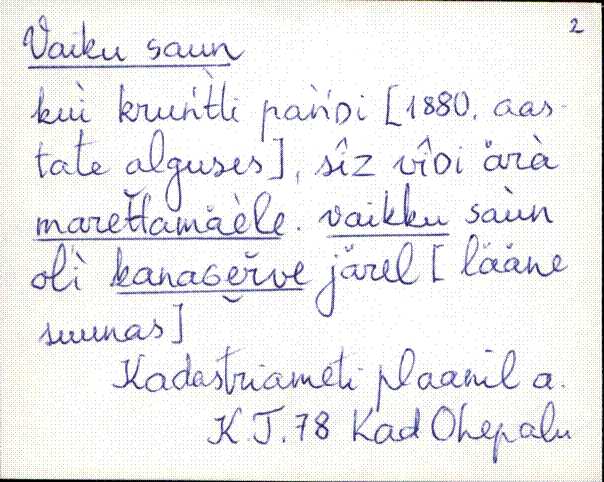 2
Vaiku saun
kuì kruńt̀li pàǹ́ᴅi [1880. aas-
tate alguses], sîz vîᴅi ärà
marettamäèle. vaikku saùn
oĺì kanaɢerve järel [lääne
suunas]
Kadastriameti plaanil a.
K.T.78 Kad Ohepalu